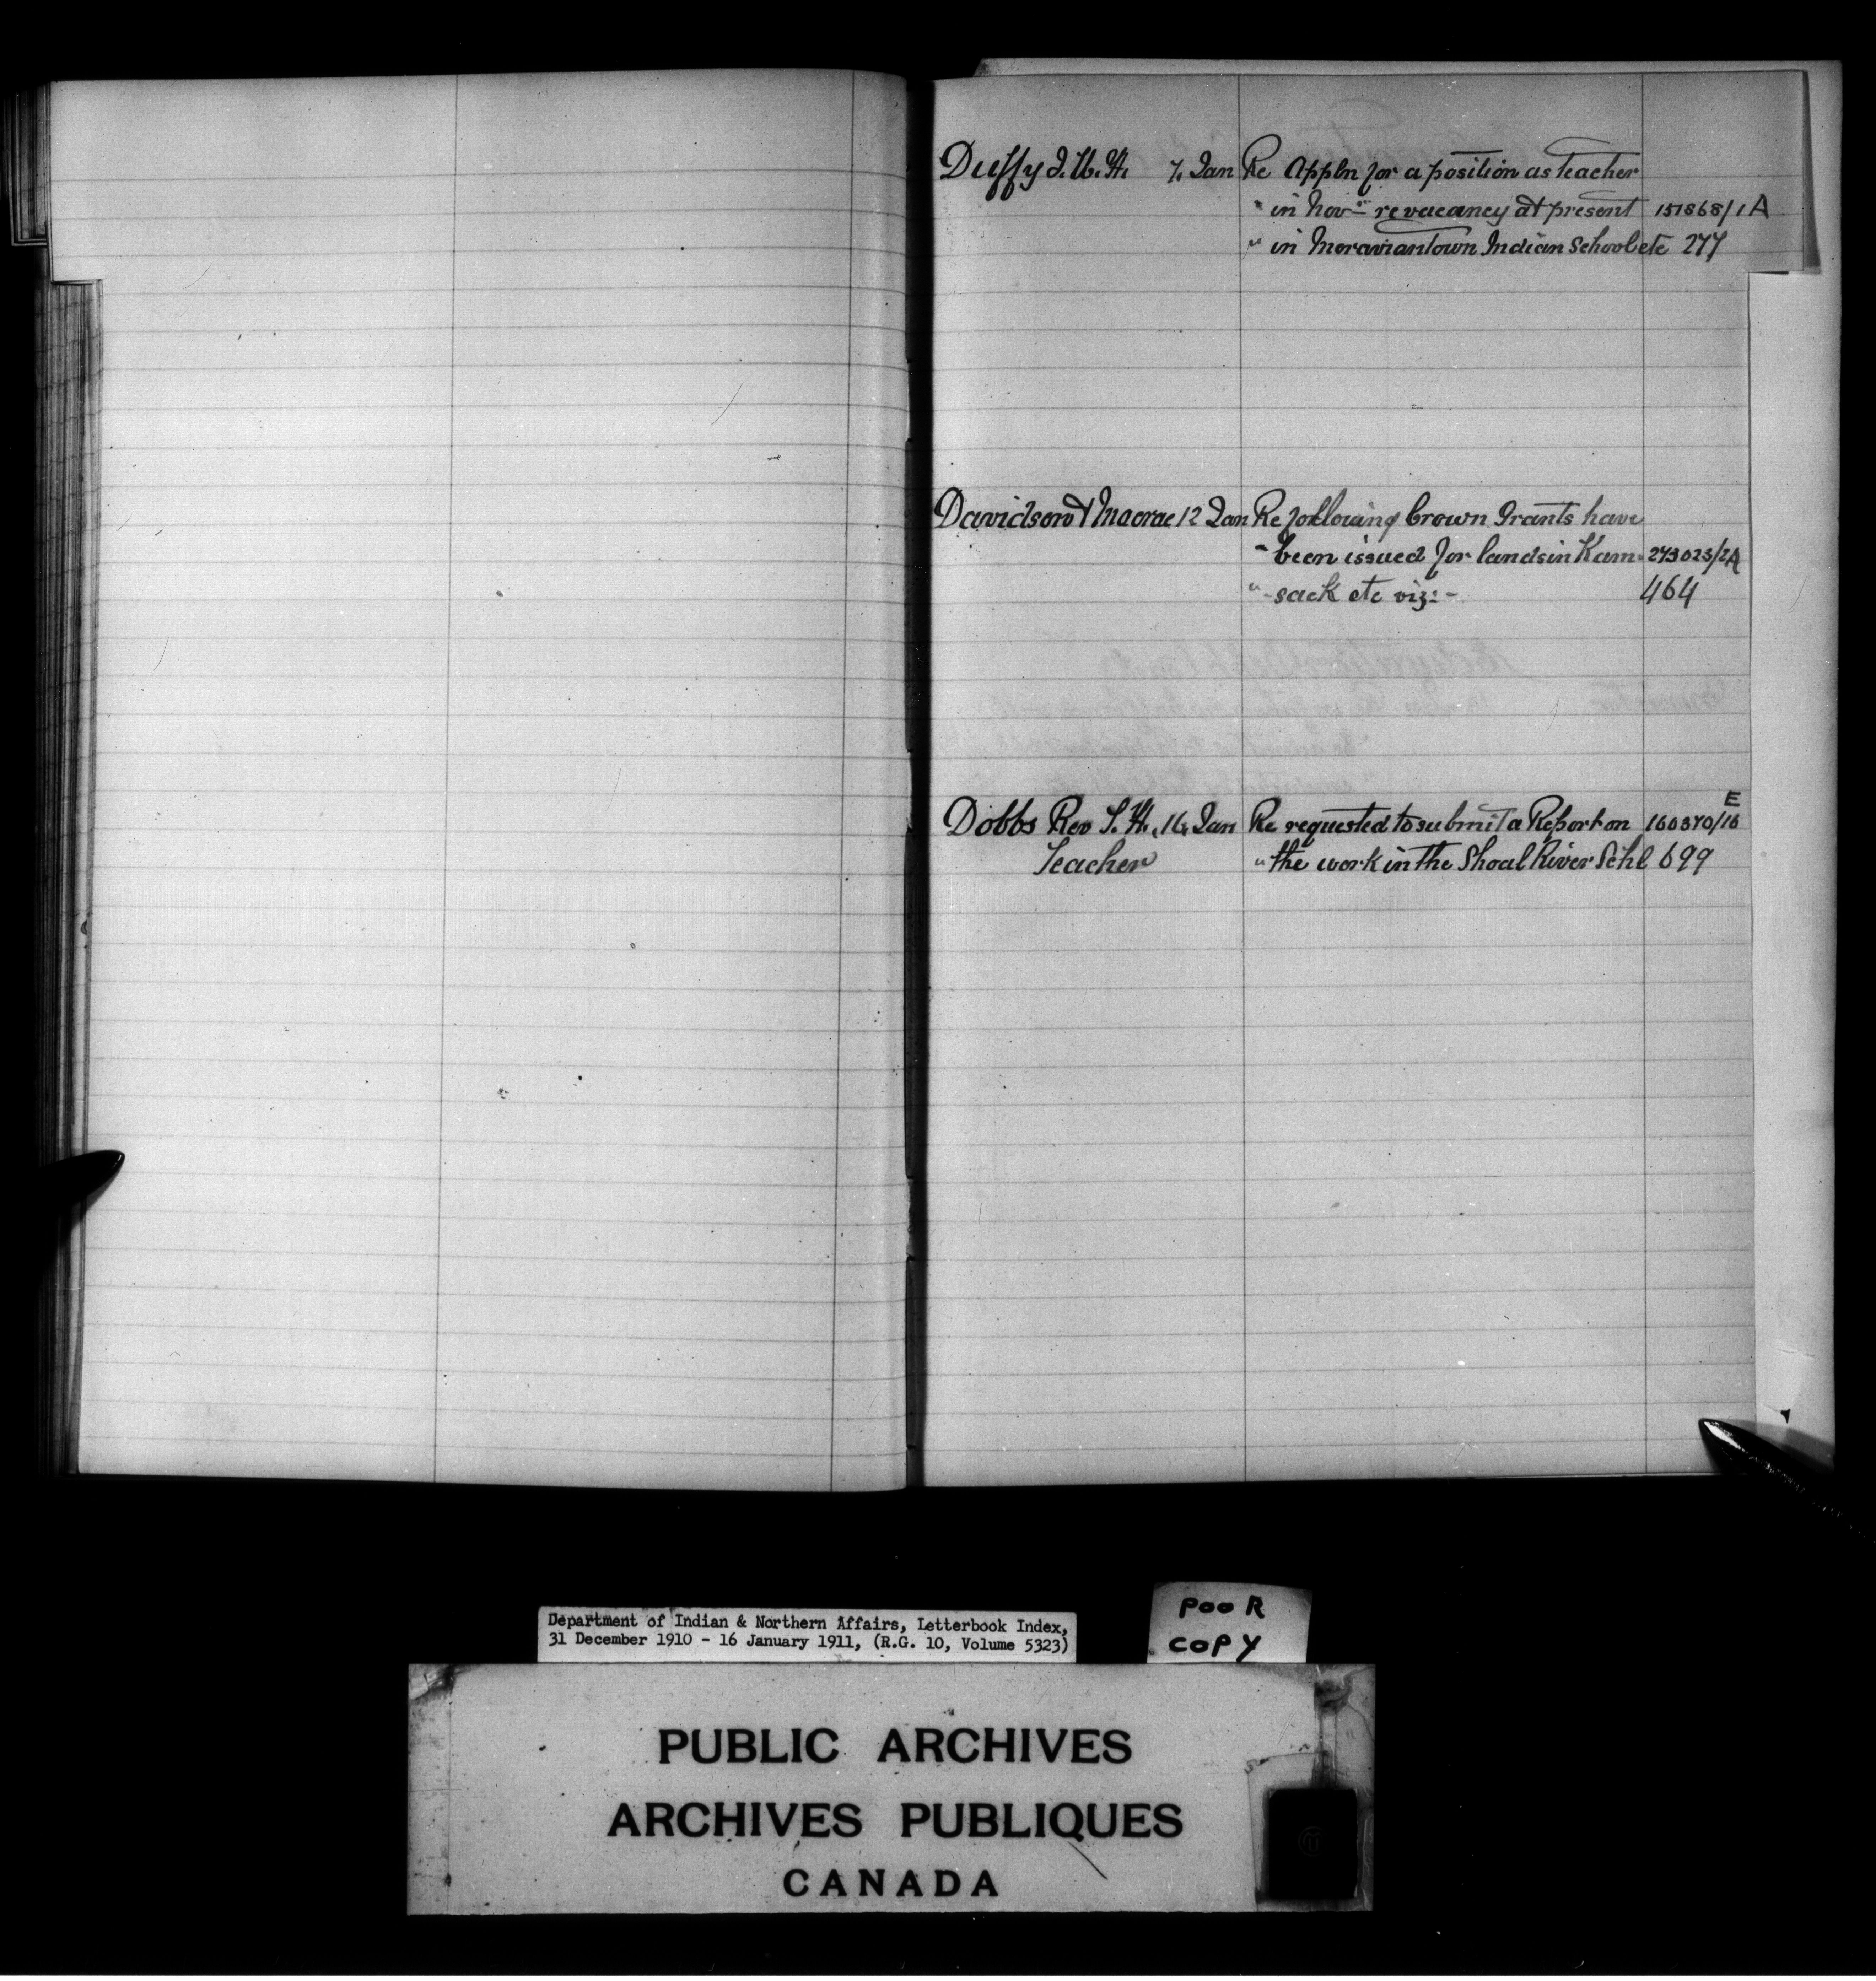 Duffy J. W. H. 7. Jan Re Appln for a position as Teacher
" in Nov- re vacancy at present 151868/1A
" in Moraviantown Indian School etc 277
Davidson & Macrae 12 Jan Re following Crown Grants have
" been issued for lands in Kam- 273023/2A
" -sack etc viz:- 464
Dobbs Rev S. H., 16, Jan Re requested to submit a Report on 160370/16 E
Teacher " the work in the Shoal River Schl 699
Department of Indian & Northern Affairs, Letterbook Index,
31 December 1910 - 16 January 1911, (R.G. 10, Volume 5323)
POOR
COPY
PUBLIC ARCHIVES
ARCHIVES PUBLIQUES
CANADA